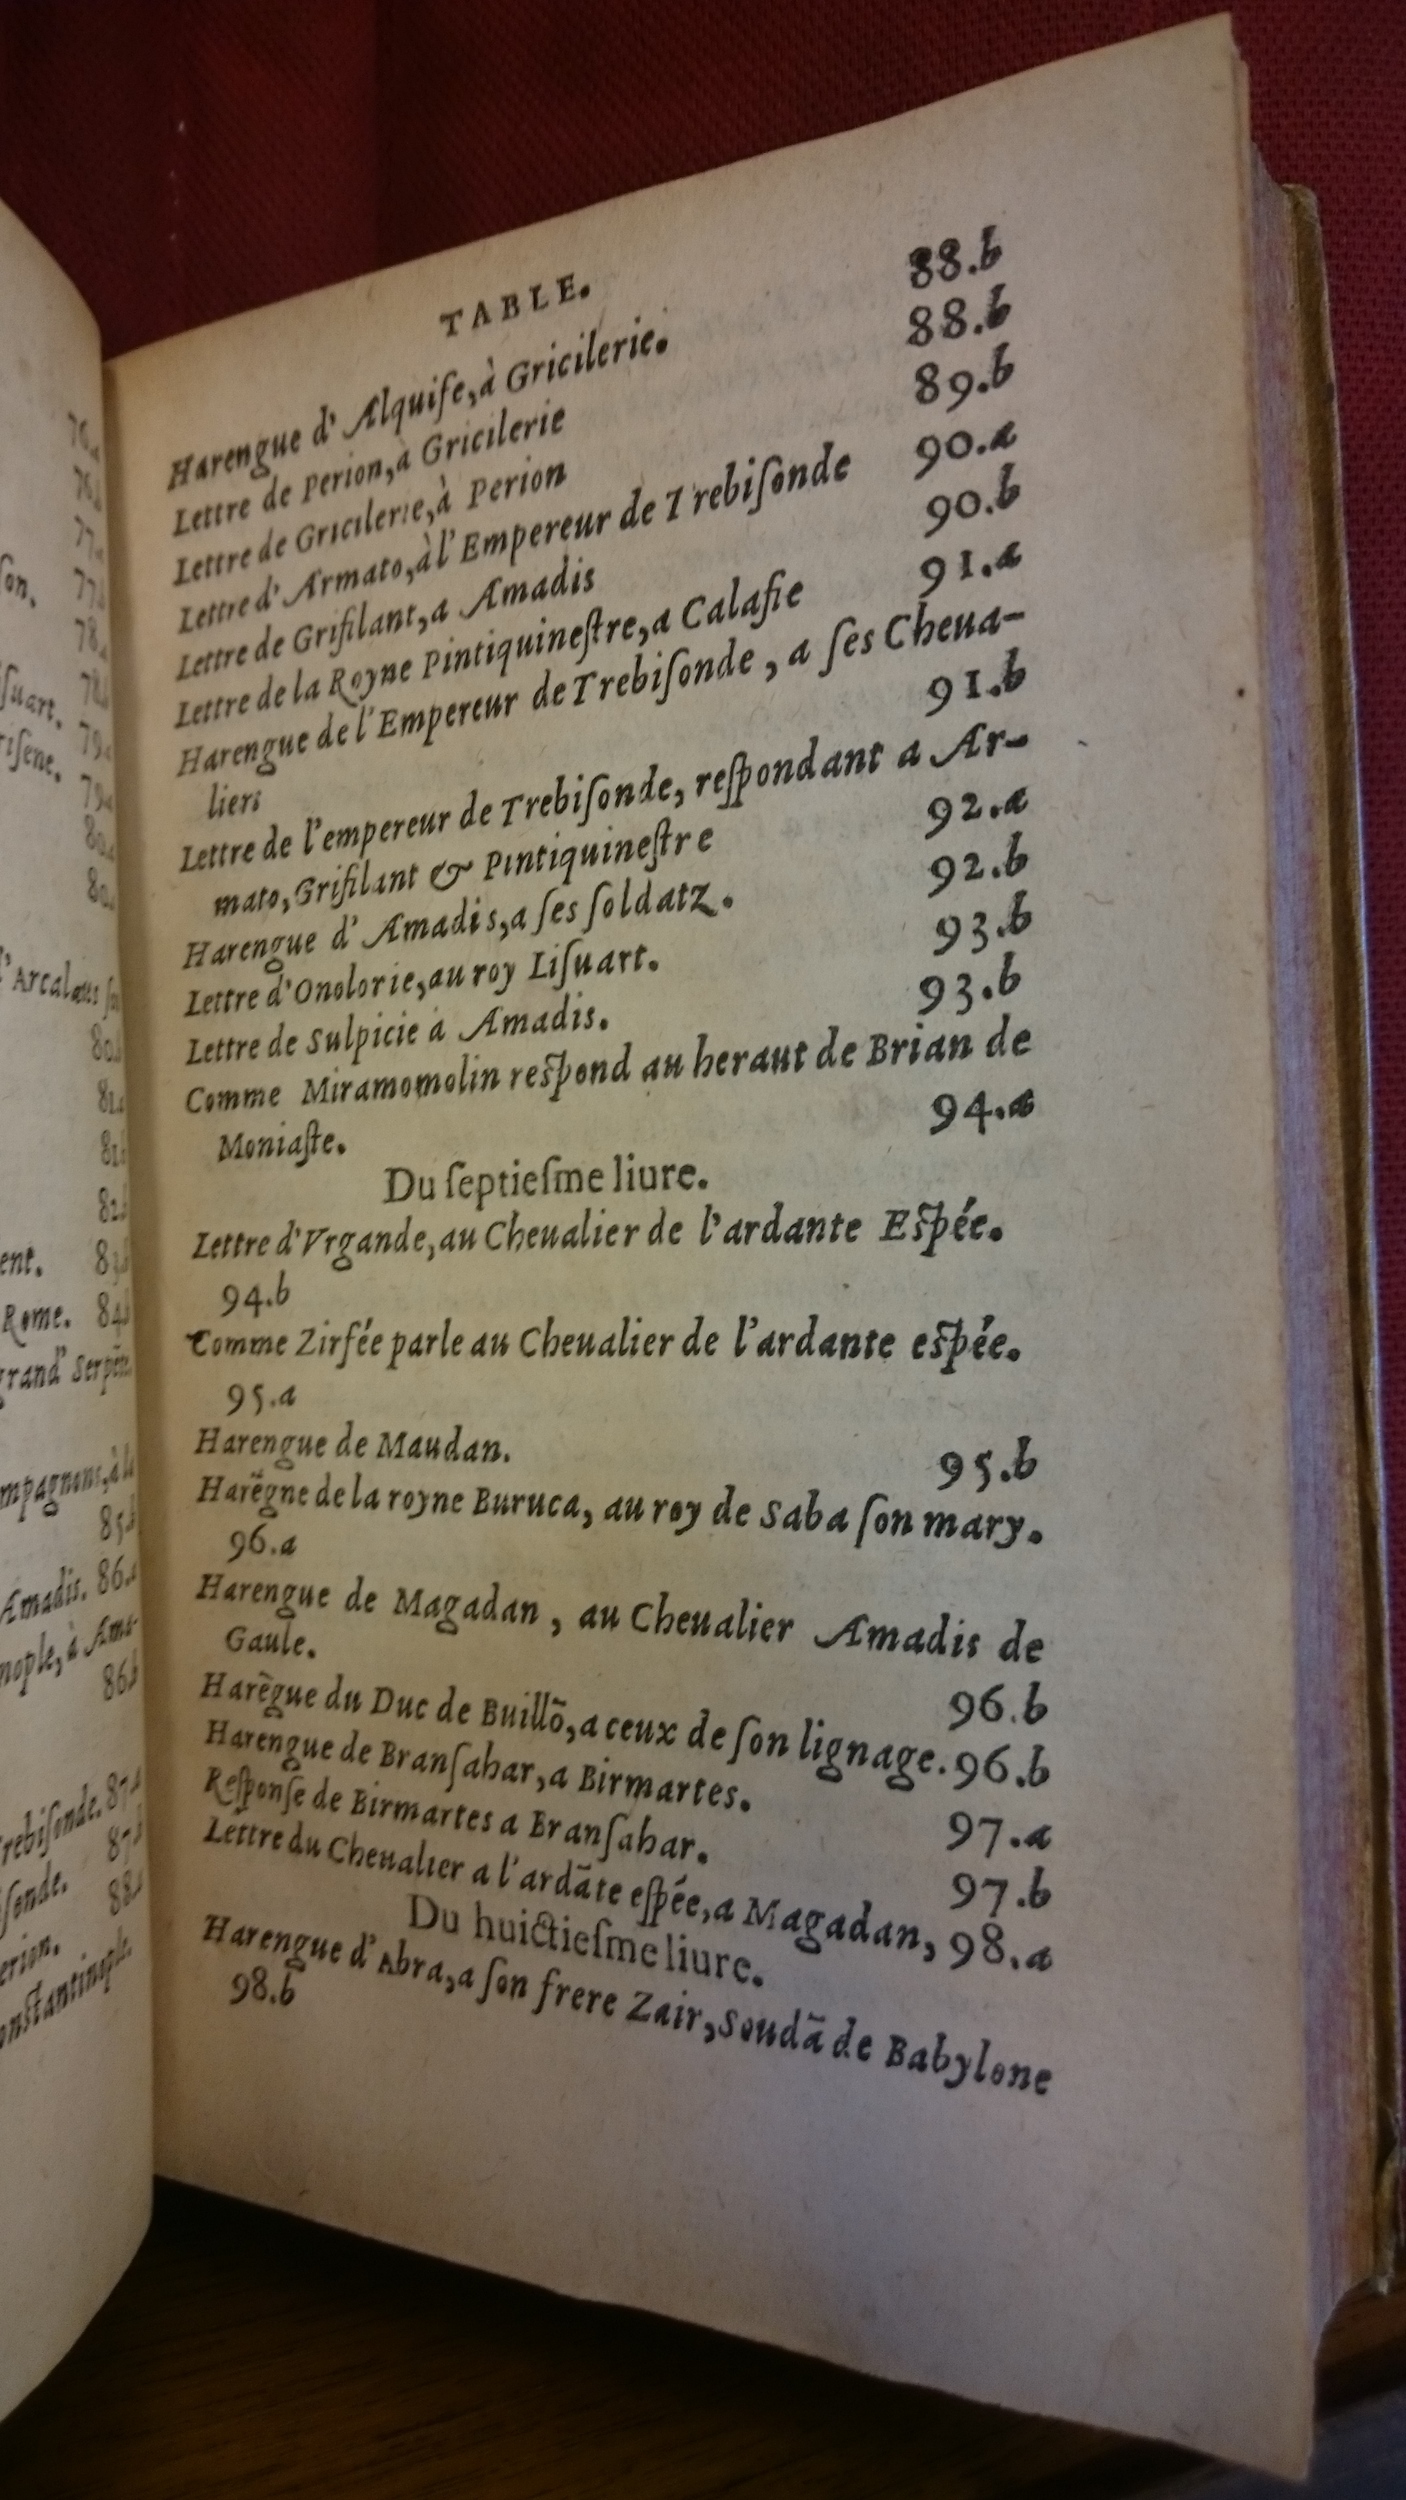 76.a
76.b
77.a
ſon. 77.b
78.a
ſuart. 78.b
riſene. 79.a
79.a
80.a
80.
d'Arcalaus
80.b
81.a
81.b
82.b
ent. 83.b
Rome. 84.b
grand' Serpẽt
mpagnons, à la
85.b
Amadis. 86.a
nople, à Ama-
86.b
rebiſonde. 87.a
87.b
ſonde. 88.a
erion.
onſtantinople.
TABLE.
Harengue d'Alquiſe, à Gricilerie. 88.b
Lettre de Perion, à Gricilerie 88.b
Lettre de Gricilerie, à Perion 89.b
Lettre d'Armato, à l'Empereur de Trebiſonde 90.a
Lettre de Grifilant, a Amadis 90.b
Lettre de la Royne Pintiquineſtre, a Calafie 91.a
Harengue de l'Empereur de Trebiſonde, a ſes Cheua-
liers 91.b
Lettre de l'empereur de Trebiſonde, reſpondant a Ar-
mato, Grifilant & Pintiquineſtre 92.a
Harengue d'Amadis, a ſes ſoldatz. 92.b
Lettre d'Onolorie, au roy Liſuart. 93.b
Lettre de Sulpicie a Amadis. 93.b
Comme Miramomolin reſpond au heraut de Brian de
Moniaſte. 94.a
Du ſeptieſme liure.
Lettre d'Vrgande, au Cheualier de l'ardante Eſpée.
94.b
Comme Zirfée parle au Cheualier de l'ardante eſpée.
95.a
Harengue de Maudan. 95.b
Harẽgne de la royne Buruca, au roy de Saba ſon mary.
96.a
Harengue de Magadan, au Cheualier Amadis de
Gaule. 96.b
Harẽgue du Duc de Buillõ, a ceux de ſon lignage. 96.b
Harengue de Branſahar, a Birmartes. 97.a
Reſponſe de Birmartes a Branſahar. 97.b
Lettre du Cheualier a l'ardãte eſpée, a Magadan, 98.a
Du huictieſme liure.
Harengue d'Abra, a ſon frere Zair, Soudã de Babylone
98.b